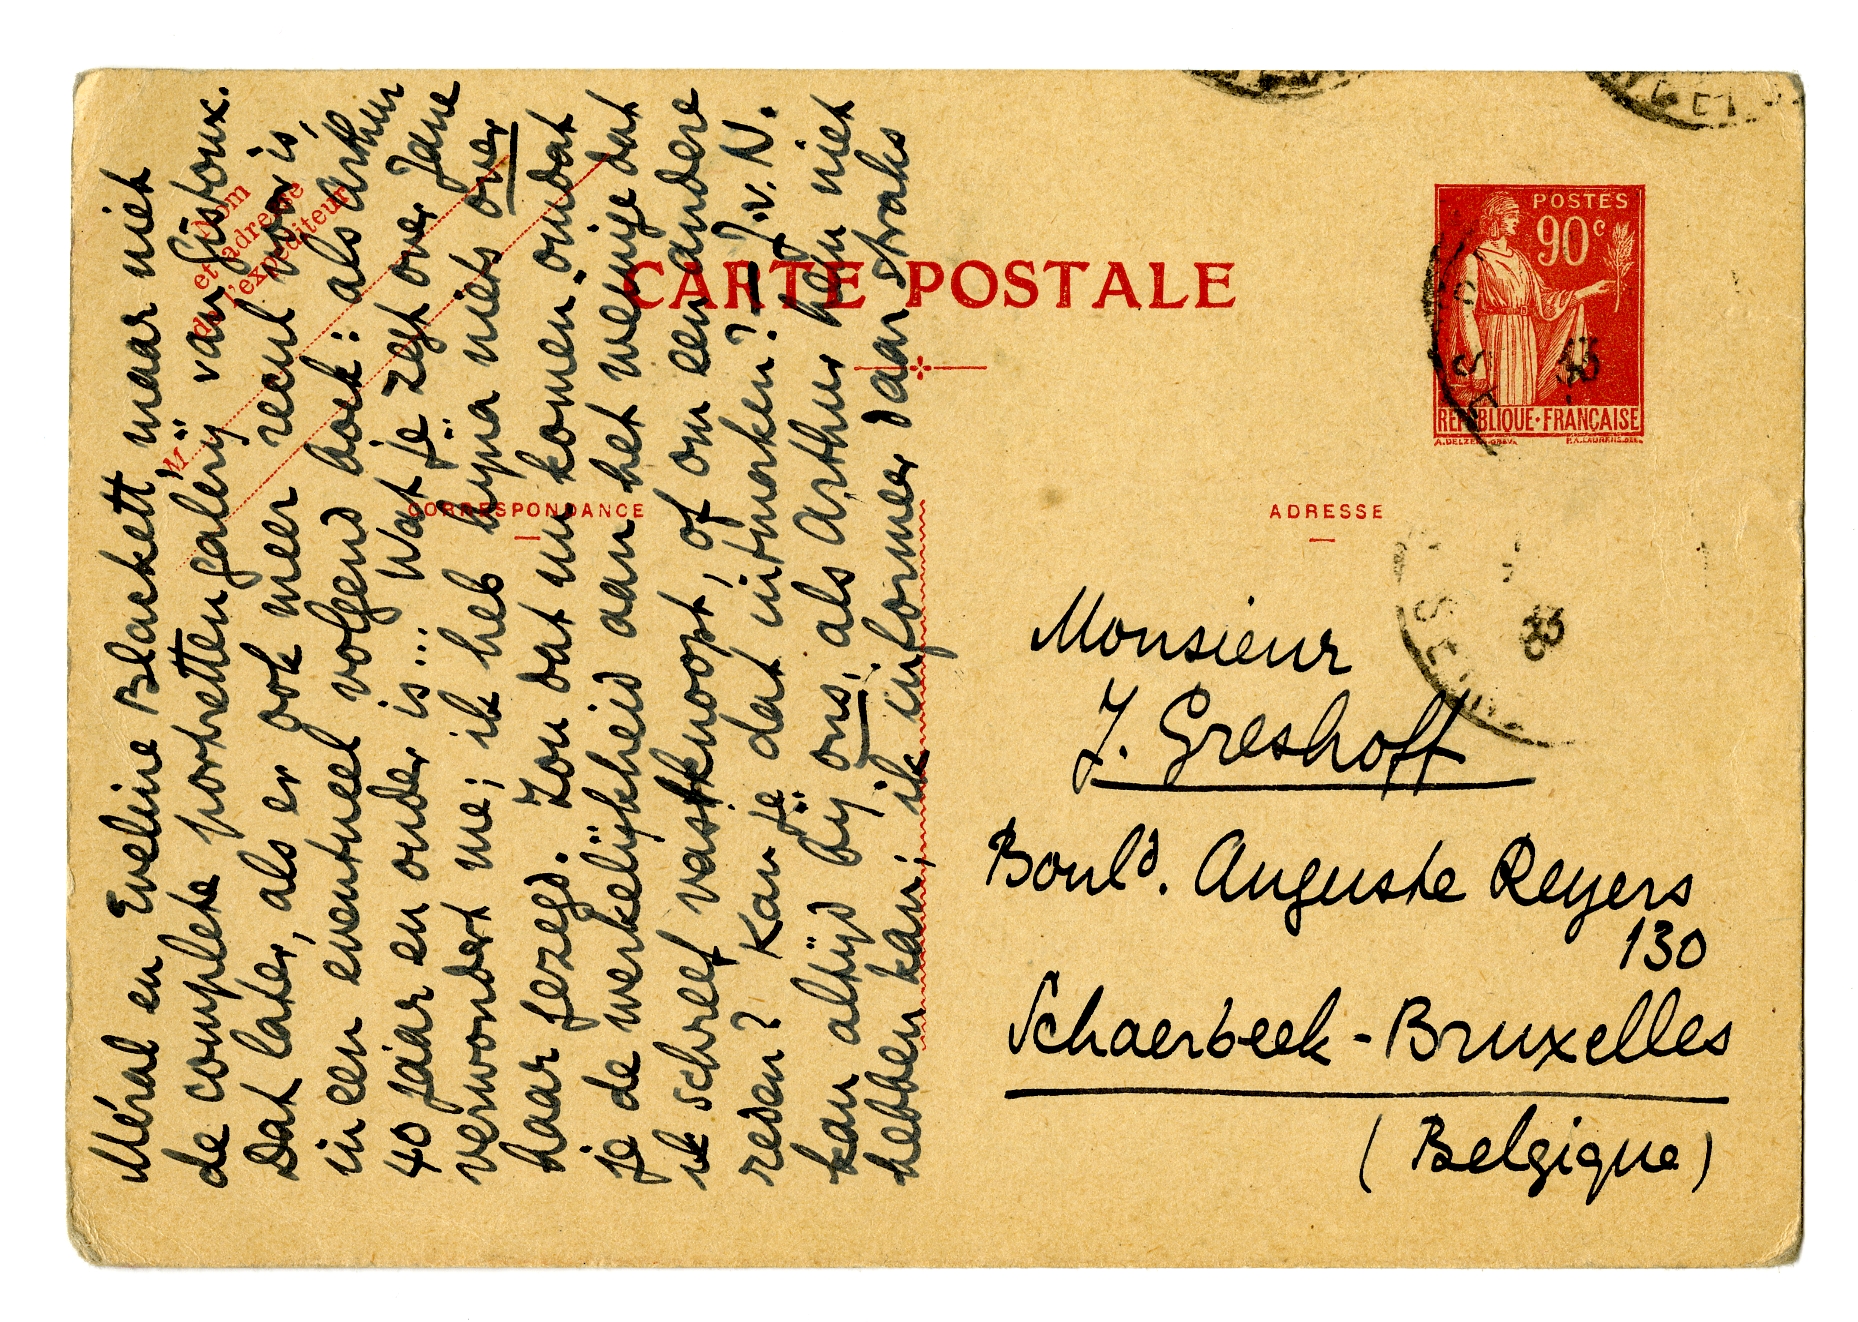 Méral en Eveline Blackett, maar niet
de complete portrettengalerij van Gistoux.
Dat later, als er ook weer veel voor is,
in een eventueel volgend boek: als Arthur
40 jaar en ouder is... Wat je zegt over Jane
verwondert me; ik heb bijna niets over
haar gezegd. Zou dat nu komen omdat
je de werkelijkheid aan het weinige dat
ik schreef vastknoopt, of om een andere
reden? Kan je dat uitmaken? – J. v. N.
kan altijd bij ons, als Arthur hem niet
hebben kan; ik informeer daar straks
Nom
et adresse
de l'expéditeur
M
CARTE POSTALE
CORRESPONDANCE
ADRESSE
POSTES
90c
REPUBLIQUE·FRANÇAISE
33
Monsieur
J. Greshoff
Bould. Auguste Reyers
130
Schaerbeek-Bruxelles
(Belgique)